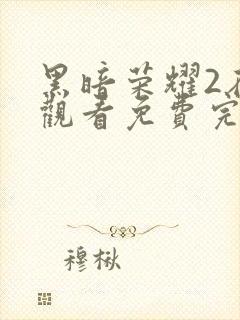 黑暗荣耀2
觀看免費完
穆楸